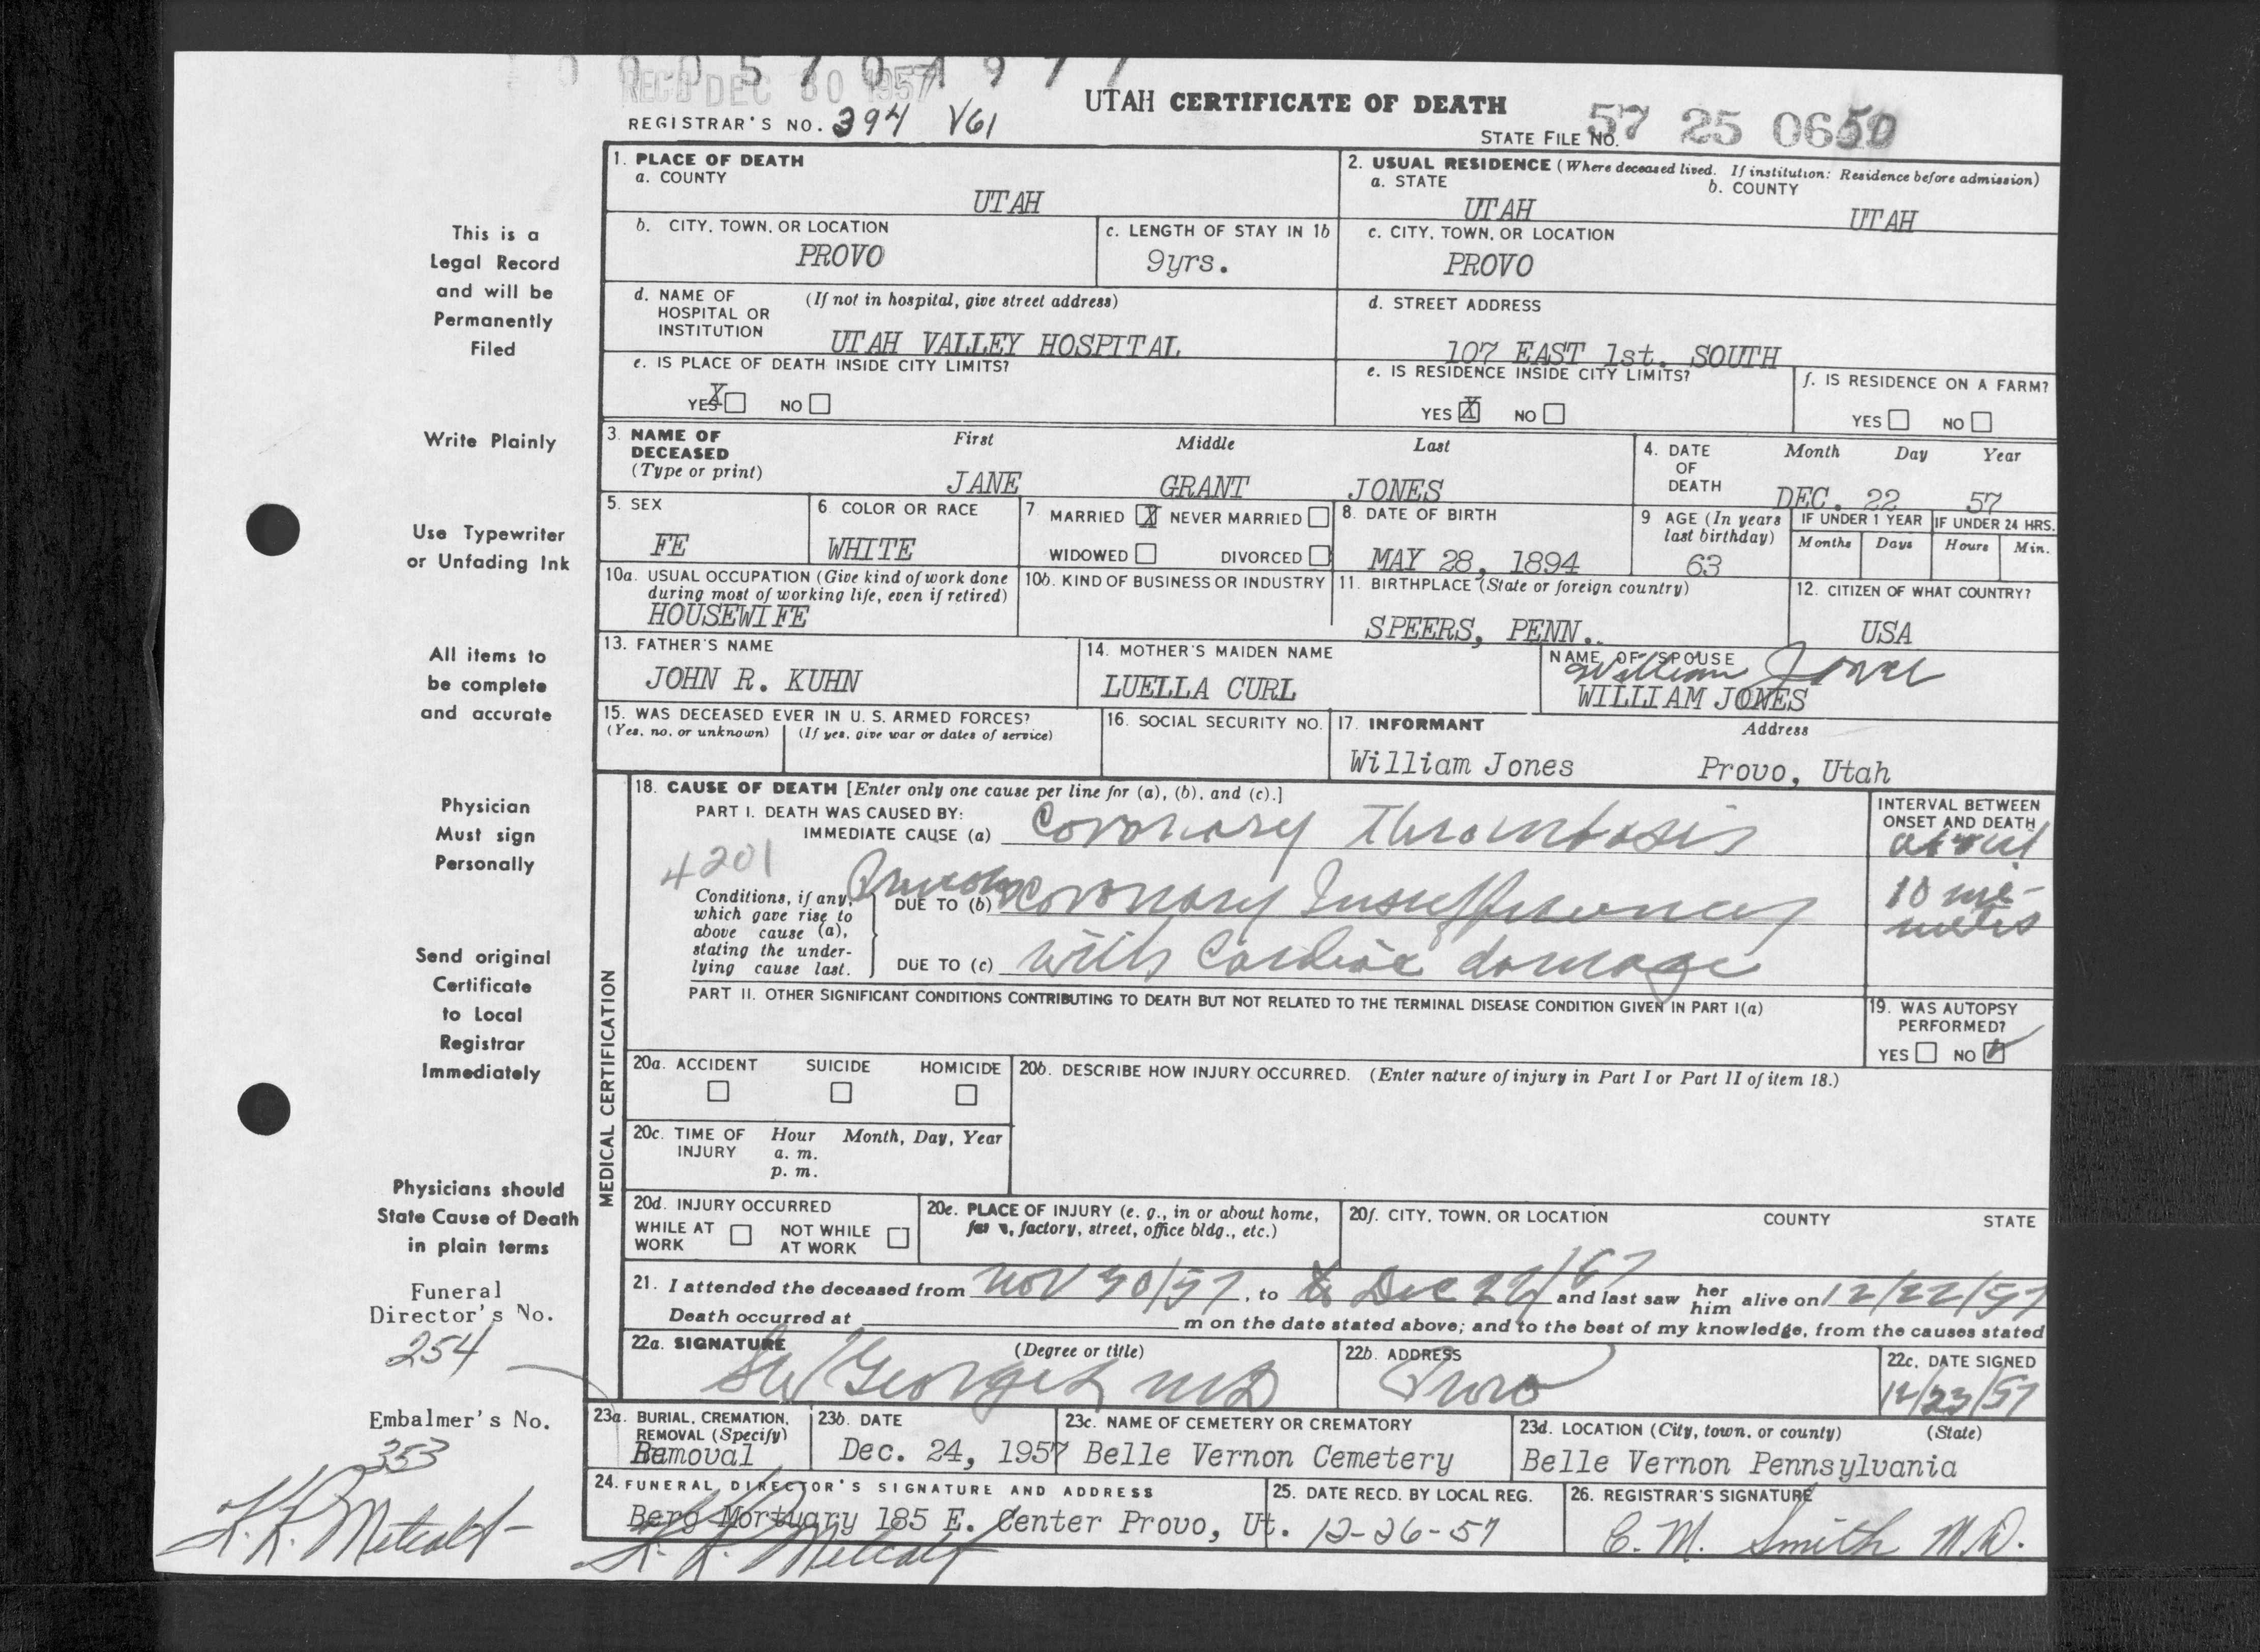 REC'D DEC 30 1957
UTAH CERTIFICATE OF DEATH
REGISTRAR'S NO. 394 V61
STATE FILE NO. 57 25 0650
1. PLACE OF DEATH
a. COUNTY
UTAH
2. USUAL RESIDENCE (Where deceased lived. If institution: Residence before admission)
a. STATE b. COUNTY
UTAH UTAH
b. CITY, TOWN, OR LOCATION
PROVO
c. LENGTH OF STAY IN 1b
9yrs.
c. CITY, TOWN, OR LOCATION
PROVO
d. NAME OF HOSPITAL OR INSTITUTION (If not in hospital, give street address)
UTAH VALLEY HOSPITAL
d. STREET ADDRESS
107 EAST 1st. SOUTH
e. IS PLACE OF DEATH INSIDE CITY LIMITS?
YES X NO
e. IS RESIDENCE INSIDE CITY LIMITS?
YES X NO
f. IS RESIDENCE ON A FARM?
YES NO
3. NAME OF DECEASED (Type or print)
First Middle Last
JANE GRANT JONES
4. DATE OF DEATH Month Day Year
DEC. 22 57
5. SEX
FE
6. COLOR OR RACE
WHITE
7. MARRIED X NEVER MARRIED
WIDOWED DIVORCED
8. DATE OF BIRTH
MAY 28, 1894
9 AGE (In years last birthday)
63
IF UNDER 1 YEAR IF UNDER 24 HRS.
Months Days Hours Min.
10a. USUAL OCCUPATION (Give kind of work done during most of working life, even if retired)
HOUSEWIFE
10b. KIND OF BUSINESS OR INDUSTRY
11. BIRTHPLACE (State or foreign country)
SPEERS, PENN.
12. CITIZEN OF WHAT COUNTRY?
USA
13. FATHER'S NAME
JOHN R. KUHN
14. MOTHER'S MAIDEN NAME
LUELLA CURL
NAME OF SPOUSE
William Jones
WILLIAM JONES
15. WAS DECEASED EVER IN U. S. ARMED FORCES?
(Yes, no, or unknown) (If yes, give war or dates of service)
16. SOCIAL SECURITY NO.
17. INFORMANT Address
William Jones Provo, Utah
MEDICAL CERTIFICATION
18. CAUSE OF DEATH [Enter only one cause per line for (a), (b), and (c).]
PART I. DEATH WAS CAUSED BY:
IMMEDIATE CAUSE (a) Coronary Thrombosis
4201
Conditions, if any, which gave rise to above cause (a), stating the underlying cause last.
DUE TO (b) Coronary Insufficiency
DUE TO (c) with Cardiac damage
INTERVAL BETWEEN ONSET AND DEATH
about
10 mi-
nutes
PART II. OTHER SIGNIFICANT CONDITIONS CONTRIBUTING TO DEATH BUT NOT RELATED TO THE TERMINAL DISEASE CONDITION GIVEN IN PART I(a)
19. WAS AUTOPSY PERFORMED?
YES NO
20a. ACCIDENT SUICIDE HOMICIDE
20b. DESCRIBE HOW INJURY OCCURRED. (Enter nature of injury in Part I or Part II of item 18.)
20c. TIME OF INJURY Hour Month, Day, Year
a. m.
p. m.
20d. INJURY OCCURRED
WHILE AT WORK NOT WHILE AT WORK
20e. PLACE OF INJURY (e. g., in or about home, farm, factory, street, office bldg., etc.)
20f. CITY, TOWN, OR LOCATION COUNTY STATE
21. I attended the deceased from Nov 30/57, to Dec 22/57 and last saw her him alive on 12/22/57
Death occurred at m on the date stated above; and to the best of my knowledge, from the causes stated
22a. SIGNATURE (Degree or title)
George MD
22b. ADDRESS
Provo
22c. DATE SIGNED
12/23/57
23a. BURIAL, CREMATION, REMOVAL (Specify)
Removal
23b. DATE
Dec. 24, 1957
23c. NAME OF CEMETERY OR CREMATORY
Belle Vernon Cemetery
23d. LOCATION (City, town, or county) (State)
Belle Vernon Pennsylvania
24. FUNERAL DIRECTOR'S SIGNATURE AND ADDRESS
Berg Mortuary 185 E. Center Provo, Ut.
K. R. Metcalf
25. DATE RECD. BY LOCAL REG.
12-26-57
26. REGISTRAR'S SIGNATURE
C. M. Smith M.D.
This is a
Legal Record
and will be
Permanently
Filed
Write Plainly
Use Typewriter
or Unfading Ink
All items to
be complete
and accurate
Physician
Must sign
Personally
Send original
Certificate
to Local
Registrar
Immediately
Physicians should
State Cause of Death
in plain terms
Funeral
Director's No.
254
Embalmer's No.
353
K. R. Metcalf